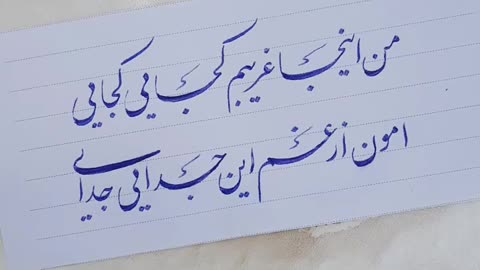 من اینجا غریبم کجایی کجایی
امون از غم این جدایی جدایی